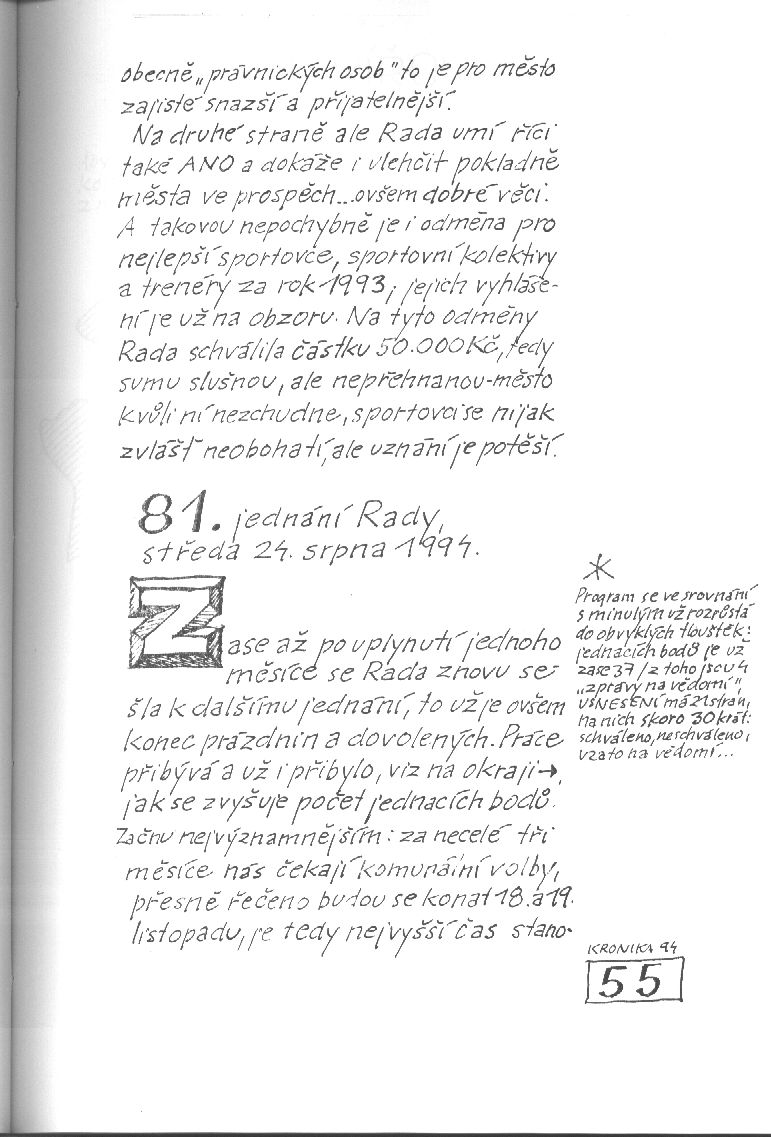 obecně „právnických osob" to je pro město
zajisté snazší a přijatelnější.
Na druhé straně ale Rada umí říci
také ANO a dokáže i ulehčit pokladně
města ve prospěch...ovšem dobré věci.
A takovou nepochybně je i odměna pro
nejlepší sportovce, sportovní kolektivy
a trenéry za rok 1993; jejich vyhláše-
ní je už na obzoru. Na tyto odměny
Rada schválila částku 50.000 Kč, tedy
sumu slušnou, ale nepřehnanou-město
kvůli ní nezchudne, sportovci se nijak
zvlášť neobohatí, ale uznání je potěší.
81. jednání Rady,
středa 24. srpna 1994.
Zase až po uplynutí jednoho
měsíce se Rada znovu se-
šla k dalšímu jednání, to už je ovšem
konec prázdnin a dovolených. Práce
přibývá a už i přibylo, viz na okraji→,
jak se zvyšuje počet jednacích bodů.
Začnu nejvýznamnějším: za necelé tři
měsíce nás čekají komunální volby,
přesně řečeno budou se konat 18. a 19.
listopadu, je tedy nejvyšší čas stano-
*
Program se ve srovnání
s minulým už rozrůstá
do obvyklých tlouštěk:
jednacích bodů je už
zase 37 / z toho jsou 4
„zprávy na vědomí",
USNESENÍ má 21 stran,
na nich skoro 30 krát:
schváleno, neschváleno,
vzato na vědomí...
KRONIKA 94
55